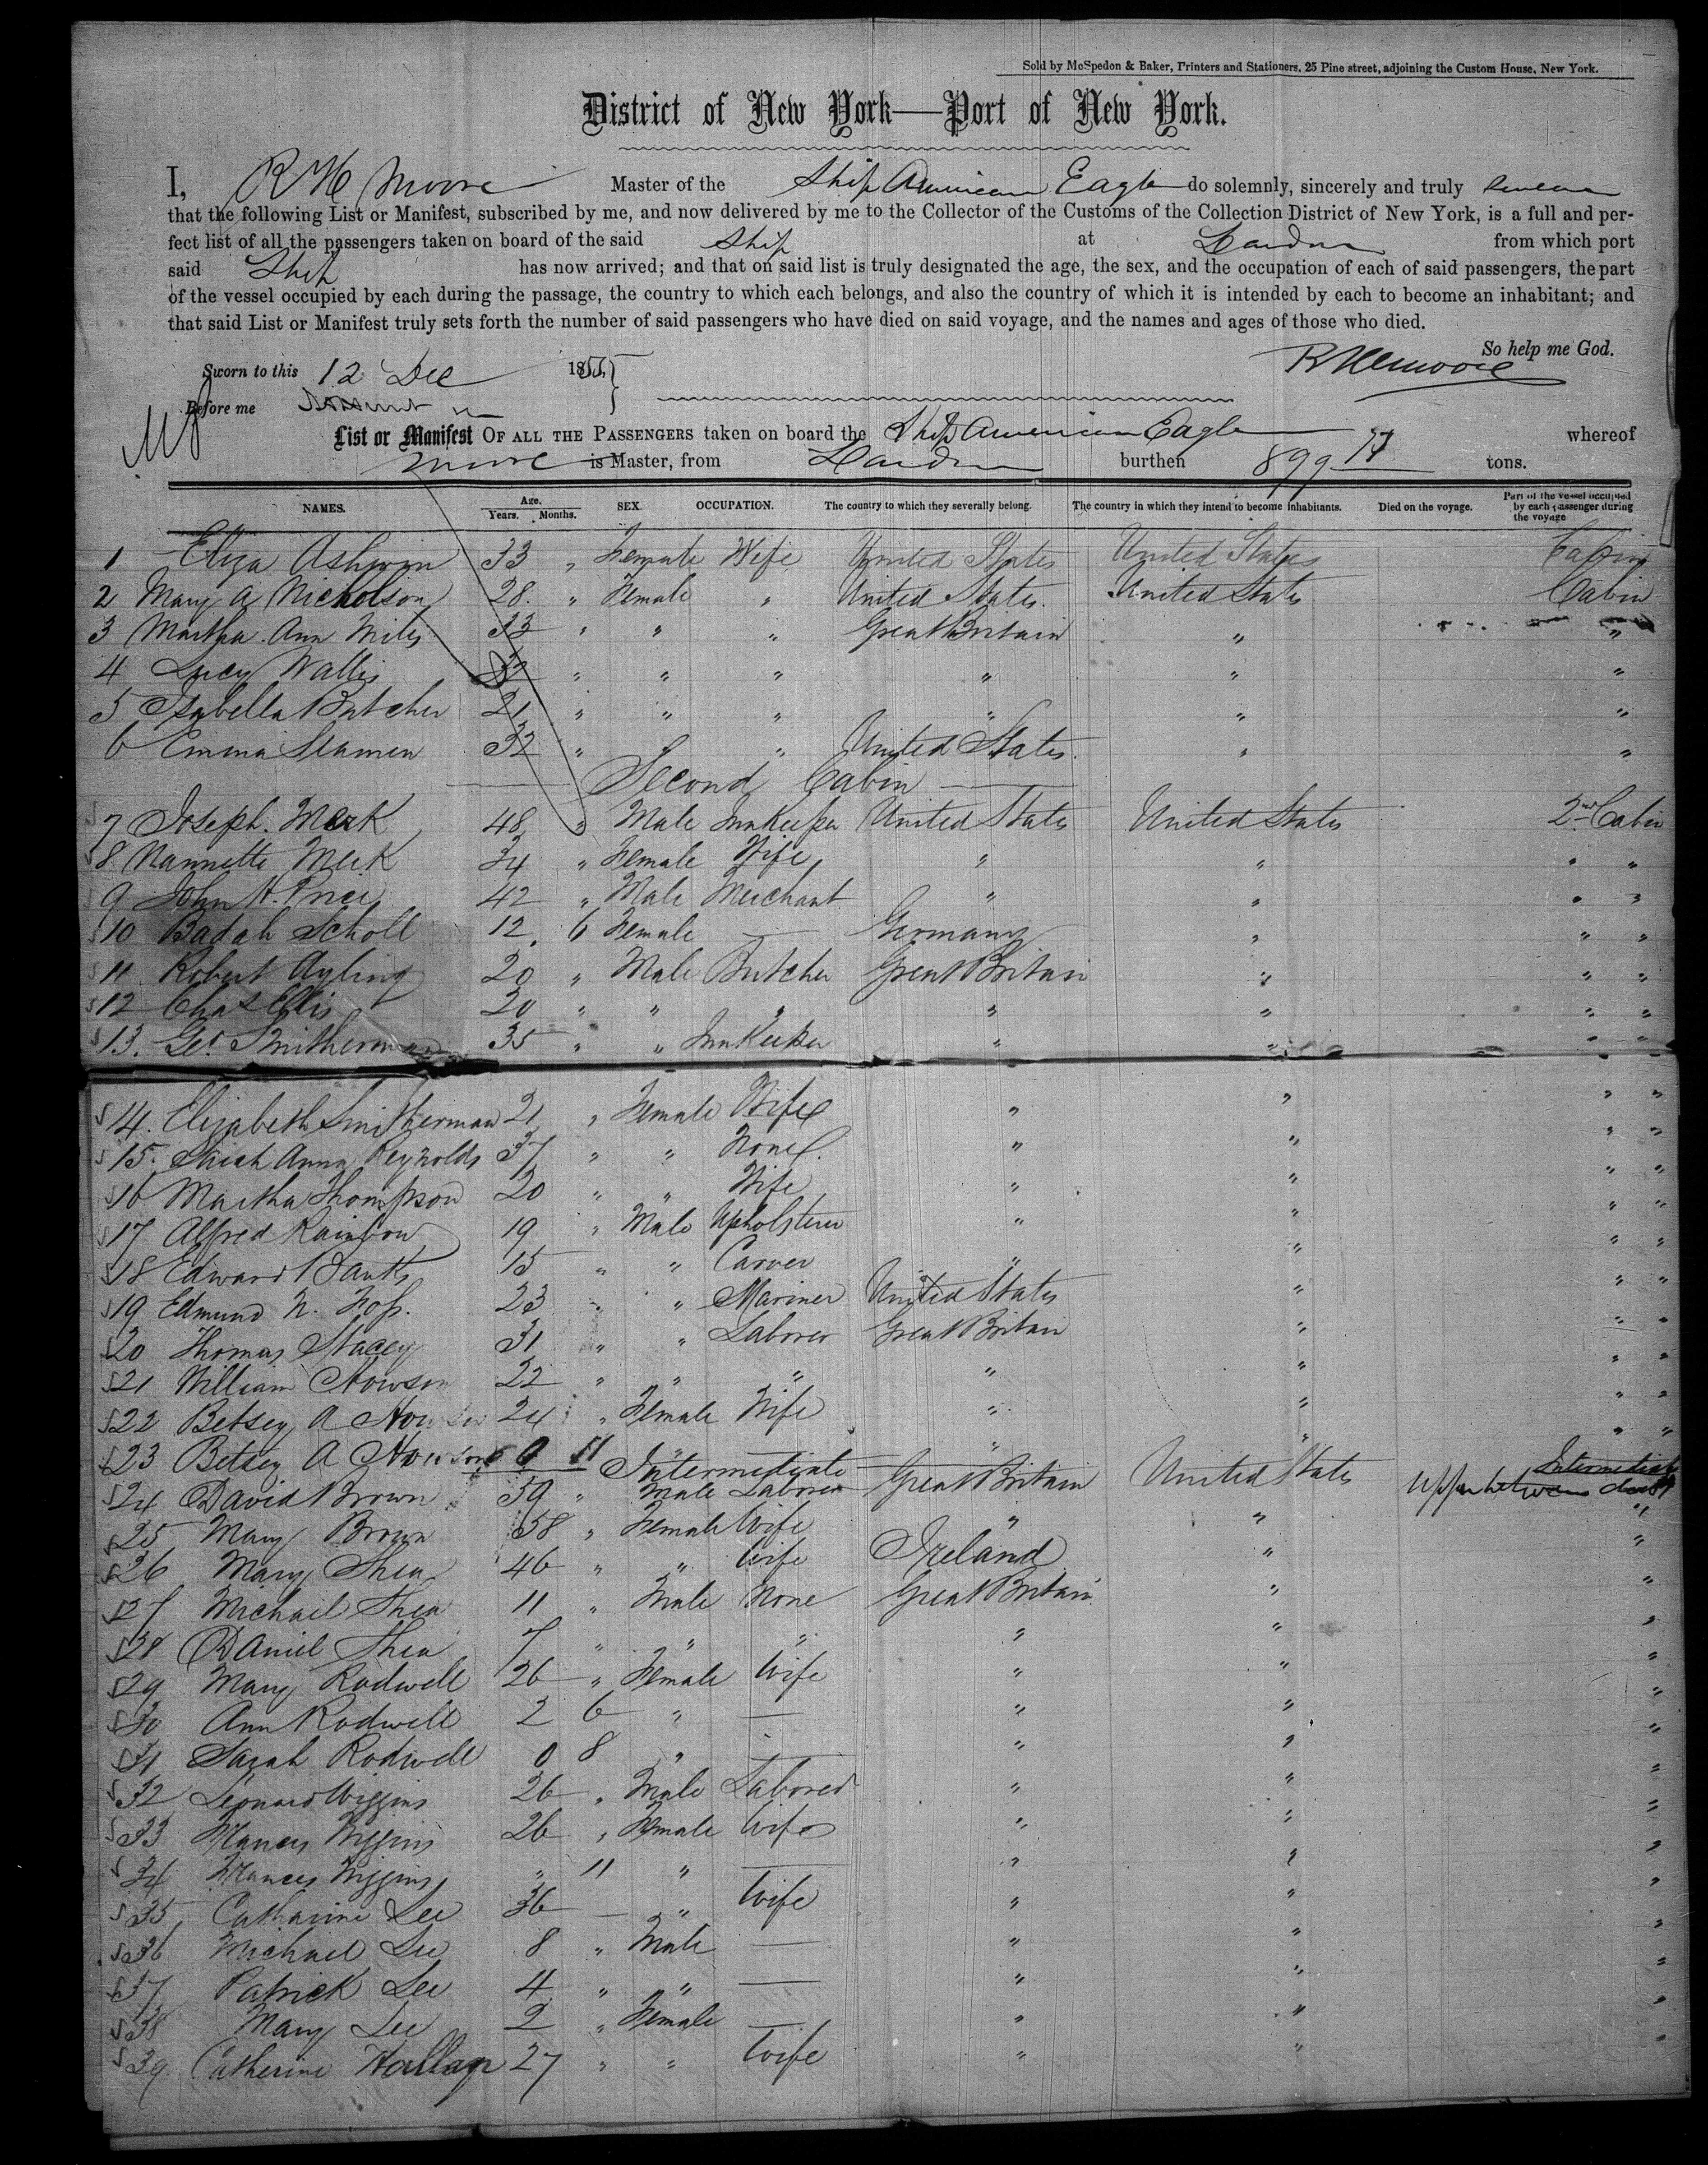 Sold by McSpedon & Baker, Printers and Stationers, 25 Pine street, adjoining the Custom House, New York.
District of New York—Port of New York.
I, R H Moore Master of the Ship American Eagle do solemnly, sincerely and truly swear
that the following List or Manifest, subscribed by me, and now delivered by me to the Collector of the Customs of the Collection District of New York, is a full and per-
fect list of all the passengers taken on board of the said Ship at London from which port
said Ship has now arrived; and that on said list is truly designated the age, the sex, and the occupation of each of said passengers, the part
of the vessel occupied by each during the passage, the country to which each belongs, and also the country of which it is intended by each to become an inhabitant; and
that said List or Manifest truly sets forth the number of said passengers who have died on said voyage, and the names and ages of those who died.
So help me God.
Sworn to this 12 Dec 1855 R H Moore
Before me
List or Manifest OF ALL THE PASSENGERS taken on board the Ship American Eagle whereof
Moore is Master, from London burthen 899 tons.
NAMES. Age. Years. Months. SEX. OCCUPATION. The country to which they severally belong. The country in which they intend to become inhabitants. Died on the voyage. Part of the vessel occupied by each passenger during the voyage
1 Eliza Ashwin 33 " Female Wife United States United States Cabin
2 Mary A Nicholson 28 " Female " United States. United States Cabin
3 Martha Ann Miles 33 " " " Great Britain " "
4 Lucy Wallis 32 " " " " " "
5 Isabella Butcher 21 " " " " " "
6 Emma Seamen 32 " " United States. " "
Second Cabin
7 Joseph Merk 48 " Male InnKeeper United States United States 2nd Cabin
8 Nannette Merk 34 " Female Wife " " " "
9 John H. Price 42 " Male Merchant " " " "
10 Badah Scholl 12 6 Female — Germany " " "
11 Robert Ayling 20 " Male Butcher Great Britain " " "
12 Chas Ellis 20 " " " " " " "
13. Geo. Smitherman 35 " " InnKeeper " " " "
14. Elizabeth Smitherman 21 " Female Wife " " " "
15. Sarah Anna Reynolds 37 " " None. " " " "
16 Martha Thompson 20 " " Wife " " " "
17 Alfred Rainbow 19 " Male Upholsterer " " " "
18 Edward Banks 15 " " Carver " " " "
19 Edmund N. Foss. 23 " " Mariner United States " " "
20 Thomas Stacey 31 " " Laborer Great Britain " " "
21 William Howson 22 " " " " " " "
22 Betsey A Howson 24 " Female Wife " " " "
23 Betsey A Howson 0 11 " " " " "
Intermediate
24 David Brown 59 " Male Laborer Great Britain United States Upper between decks Intermediate
25 Mary Brown 58 " Female Wife " " "
26 Mary Shea 46 " " Wife Ireland " "
27 Michail Shea 11 " Male None Great Britain " "
28 Daniel Shea 7 " " " " " "
29 Mary Rodwell 26 " Female Wife " " "
30 Ann Rodwell 2 6 " — " " "
31 Sarah Rodwell 0 8 " - " " "
32 Leonard Wiggins 26 " Male Laborer " " "
33 Frances Wiggins 26 " Female Wife " " "
34 Frances Wiggins " 11 " — " " "
35 Catharine Lee 36 — " Wife " " "
36 Michael Lee 8 " Male — " " "
37 Patrick Lee 4 " " — " " "
38 Mary Lee 2 " Female — " " "
39 Catherine 27 " " Wife " " "